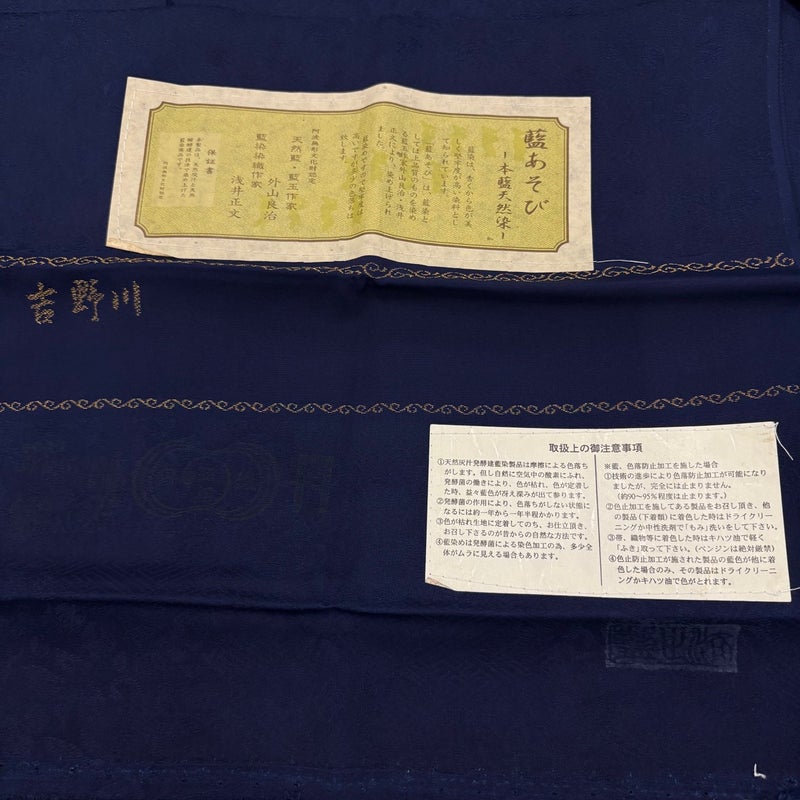 藍あそび
ー本藍天然染ー
藍染は、古くから色が美
しく堅牢度が高い染料とし
て知られています。
「藍あそび」は、藍染と
しては上品質のものを染め
る藍玉作家外山良治・浅井
正文により、染め上げられ
ました。
致します。
阿波無形文化財認定
天然藍・藍玉作家
外山良治
藍染染織作家
浅井正文
保証書
吉野川
取扱上の御注意事項
①天然灰汁発酵建藍染製品は摩擦による色落ち
がします。但し自然に空気中の酸素にふれ、
発酵菌の働きにより、色が枯れ、色が定着し
た時、益々藍色が冴え深みが出て参ります。
②発酵菌の作用により、色落ちがしない状態に
なるには約一年から一年半程かかります。
③色が枯れ生地に定着してのち、お仕立頂き、
お召し下さるのが昔からの自然な方法です。
④藍染めは発酵菌による染色加工の為、多少全
体がムラに見える場合もあります。
※藍、色落防止加工を施した場合
①技術の進歩により色落防止加工が可能になり
ましたが、完全には止まりません。
(約90〜95%程度は止まります。)
②色止加工を施してある製品をお召し頂き、他
の製品(下着類)に着色した時はドライクリー
ニングか中性洗剤で「もみ」洗いをして下さい。
③帯、織物等に着色した時はキハツ油で軽く
「ふき」取って下さい。(ベンジンは絶対厳禁)
④色止防止加工が施された製品の藍色が他に着
色した場合のみ、その製品はドライクリーニ
ングかキハツ油で色がとれます。